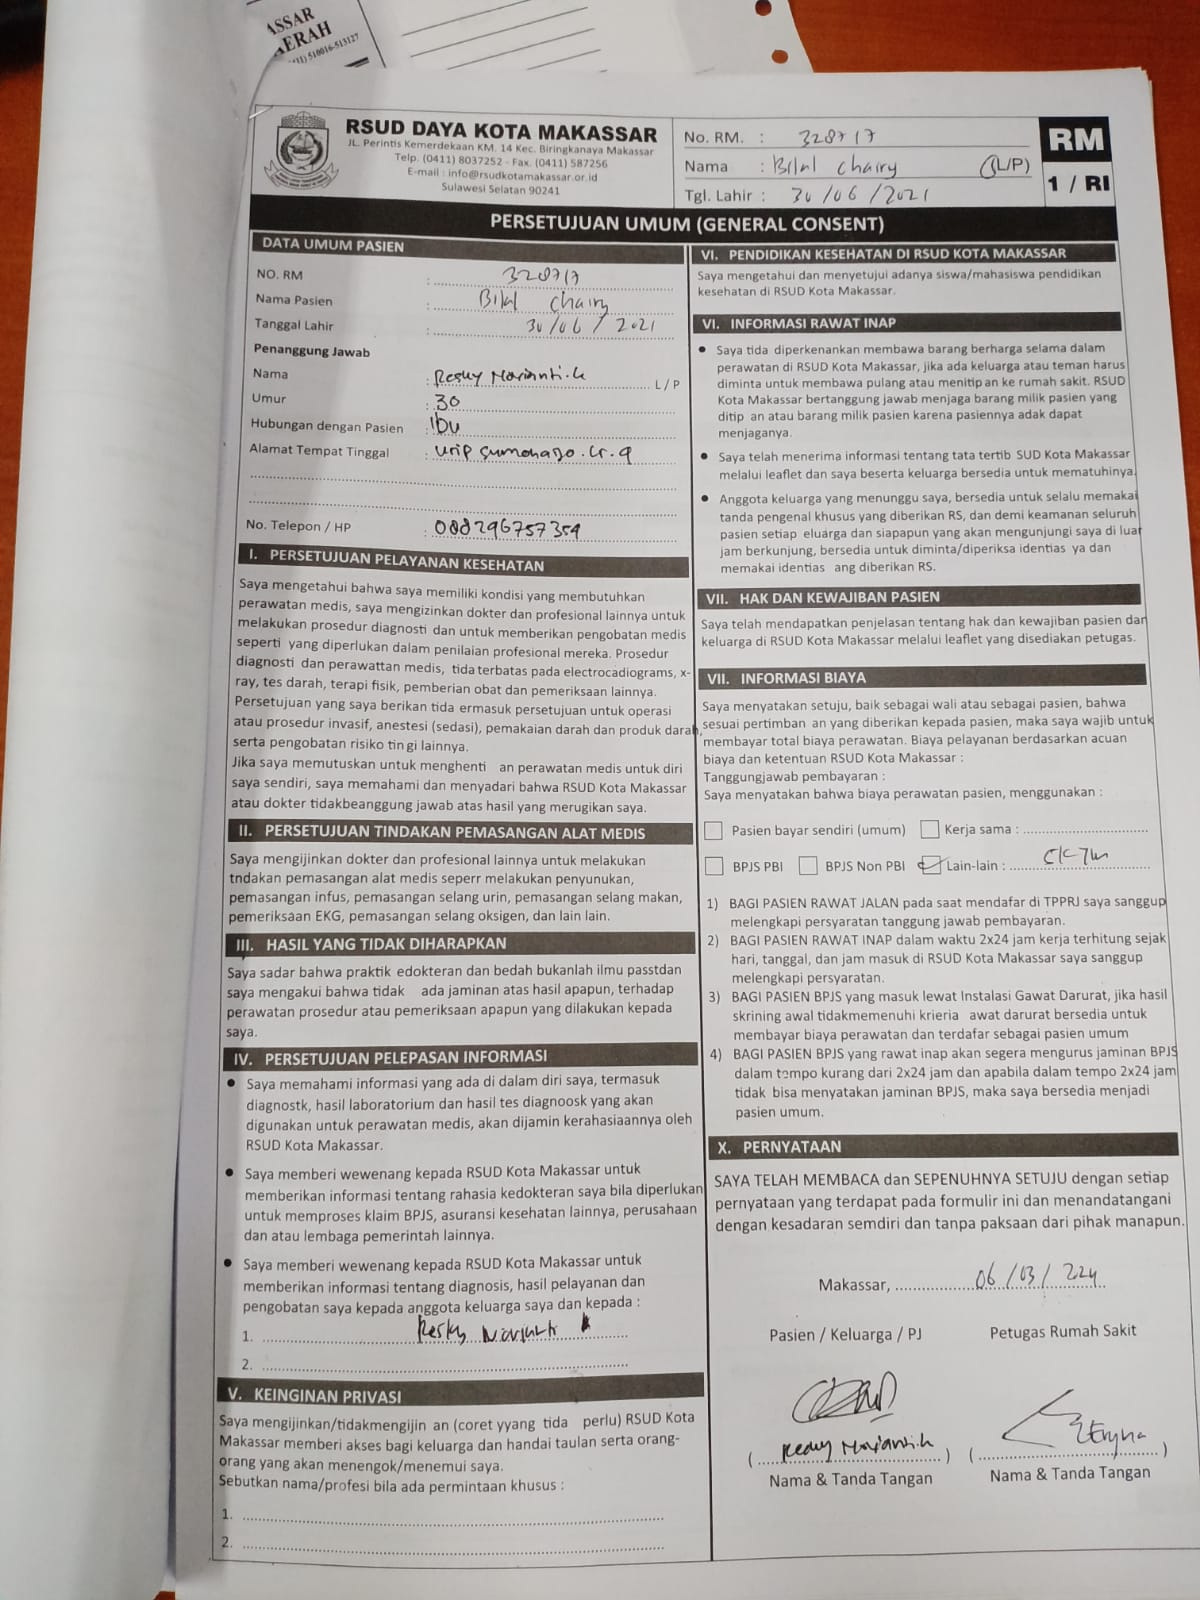 ASSAR
AERAH
510016-513127
RSUD DAYA KOTA MAKASSAR
JL. Perintis Kemerdekaan KM. 14 Kec. Biringkanaya Makassar
Telp. (0411) 8037252 - Fax. (0411) 587256
E-mail : info@rsudkotamakassar.or.id
Sulawesi Selatan 90241
No. RM. : 328717
Nama : Bilal Chairy (L/P)
Tgl. Lahir : 30/06/2021
RM
1 / RI
PERSETUJUAN UMUM (GENERAL CONSENT)
DATA UMUM PASIEN
NO. RM : 328717
Nama Pasien : Bilal Chairy
Tanggal Lahir : 30/06/2021
Penanggung Jawab
Nama : Resky Marianti.H L / P
Umur : 30
Hubungan dengan Pasien : Ibu
Alamat Tempat Tinggal : Urip Sumoharjo. Lr. 9
No. Telepon / HP : 088296757359
I. PERSETUJUAN PELAYANAN KESEHATAN
Saya mengetahui bahwa saya memiliki kondisi yang membutuhkan
perawatan medis, saya mengizinkan dokter dan profesional lainnya untuk
melakukan prosedur diagnosti dan untuk memberikan pengobatan medis
seperti yang diperlukan dalam penilaian profesional mereka. Prosedur
diagnosti dan perawattan medis, tida terbatas pada electrocadiograms, x-
ray, tes darah, terapi fisik, pemberian obat dan pemeriksaan lainnya.
Persetujuan yang saya berikan tida ermasuk persetujuan untuk operasi
atau prosedur invasif, anestesi (sedasi), pemakaian darah dan produk darah,
serta pengobatan risiko tin gi lainnya.
Jika saya memutuskan untuk menghenti an perawatan medis untuk diri
saya sendiri, saya memahami dan menyadari bahwa RSUD Kota Makassar
atau dokter tidakbeanggung jawab atas hasil yang merugikan saya.
II. PERSETUJUAN TINDAKAN PEMASANGAN ALAT MEDIS
Saya mengijinkan dokter dan profesional lainnya untuk melakukan
tndakan pemasangan alat medis seperr melakukan penyunukan,
pemasangan infus, pemasangan selang urin, pemasangan selang makan,
pemeriksaan EKG, pemasangan selang oksigen, dan lain lain.
III. HASIL YANG TIDAK DIHARAPKAN
Saya sadar bahwa praktik edokteran dan bedah bukanlah ilmu passtdan
saya mengakui bahwa tidak ada jaminan atas hasil apapun, terhadap
perawatan prosedur atau pemeriksaan apapun yang dilakukan kepada
saya.
IV. PERSETUJUAN PELEPASAN INFORMASI
● Saya memahami informasi yang ada di dalam diri saya, termasuk
diagnostk, hasil laboratorium dan hasil tes diagnoosk yang akan
digunakan untuk perawatan medis, akan dijamin kerahasiaannya oleh
RSUD Kota Makassar.
● Saya memberi wewenang kepada RSUD Kota Makassar untuk
memberikan informasi tentang rahasia kedokteran saya bila diperlukan
untuk memproses klaim BPJS, asuransi kesehatan lainnya, perusahaan
dan atau lembaga pemerintah lainnya.
● Saya memberi wewenang kepada RSUD Kota Makassar untuk
memberikan informasi tentang diagnosis, hasil pelayanan dan
pengobatan saya kepada anggota keluarga saya dan kepada :
1. Resky Marianti
2.
V. KEINGINAN PRIVASI
Saya mengijinkan/tidakmengijin an (coret yyang tida perlu) RSUD Kota
Makassar memberi akses bagi keluarga dan handai taulan serta orang-
orang yang akan menengok/menemui saya.
Sebutkan nama/profesi bila ada permintaan khusus :
1.
2.
VI. PENDIDIKAN KESEHATAN DI RSUD KOTA MAKASSAR
Saya mengetahui dan menyetujui adanya siswa/mahasiswa pendidikan
kesehatan di RSUD Kota Makassar.
VI. INFORMASI RAWAT INAP
● Saya tida diperkenankan membawa barang berharga selama dalam
perawatan di RSUD Kota Makassar, jika ada keluarga atau teman harus
diminta untuk membawa pulang atau menitip an ke rumah sakit. RSUD
Kota Makassar bertanggung jawab menjaga barang milik pasien yang
ditip an atau barang milik pasien karena pasiennya adak dapat
menjaganya.
● Saya telah menerima informasi tentang tata tertib SUD Kota Makassar
melalui leaflet dan saya beserta keluarga bersedia untuk mematuhinya.
● Anggota keluarga yang menunggu saya, bersedia untuk selalu memakai
tanda pengenal khusus yang diberikan RS, dan demi keamanan seluruh
pasien setiap eluarga dan siapapun yang akan mengunjungi saya di luar
jam berkunjung, bersedia untuk diminta/diperiksa identias ya dan
memakai identias ang diberikan RS.
VII. HAK DAN KEWAJIBAN PASIEN
Saya telah mendapatkan penjelasan tentang hak dan kewajiban pasien dan
keluarga di RSUD Kota Makassar melalui leaflet yang disediakan petugas.
VII. INFORMASI BIAYA
Saya menyatakan setuju, baik sebagai wali atau sebagai pasien, bahwa
sesuai pertimban an yang diberikan kepada pasien, maka saya wajib untuk
membayar total biaya perawatan. Biaya pelayanan berdasarkan acuan
biaya dan ketentuan RSUD Kota Makassar :
Tanggungjawab pembayaran :
Saya menyatakan bahwa biaya perawatan pasien, menggunakan :
Pasien bayar sendiri (umum) Kerja sama :
BPJS PBI BPJS Non PBI Lain-lain :
1) BAGI PASIEN RAWAT JALAN pada saat mendafar di TPPRJ saya sanggup
melengkapi persyaratan tanggung jawab pembayaran.
2) BAGI PASIEN RAWAT INAP dalam waktu 2x24 jam kerja terhitung sejak
hari, tanggal, dan jam masuk di RSUD Kota Makassar saya sanggup
melengkapi persyaratan.
3) BAGI PASIEN BPJS yang masuk lewat Instalasi Gawat Darurat, jika hasil
skrining awal tidakmemenuhi krieria awat darurat bersedia untuk
membayar biaya perawatan dan terdafar sebagai pasien umum
4) BAGI PASIEN BPJS yang rawat inap akan segera mengurus jaminan BPJS
dalam tempo kurang dari 2x24 jam dan apabila dalam tempo 2x24 jam
tidak bisa menyatakan jaminan BPJS, maka saya bersedia menjadi
pasien umum.
X. PERNYATAAN
SAYA TELAH MEMBACA dan SEPENUHNYA SETUJU dengan setiap
pernyataan yang terdapat pada formulir ini dan menandatangani
dengan kesadaran semdiri dan tanpa paksaan dari pihak manapun.
Makassar, 06/03/2024
Pasien / Keluarga / PJ Petugas Rumah Sakit
( Resky Marianti.H ) ( )
Nama & Tanda Tangan Nama & Tanda Tangan